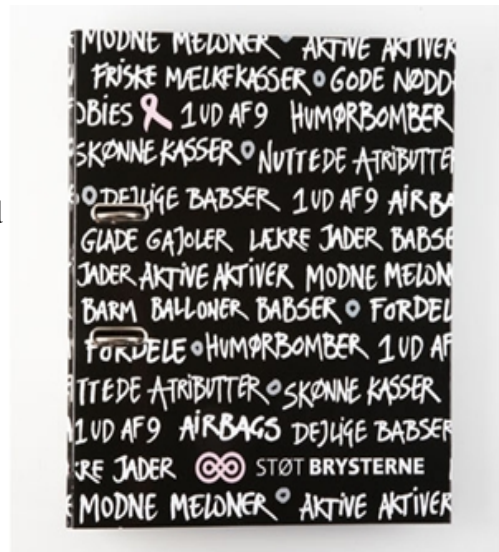 MODNE MELONER AKTIVE AKTIVER
FRISKE MÆLKEKASSER GODE NØDD
OBIES 1 UD AF 9 HUMØRBOMBER
SKØNNE KASSER NUTTEDE A-TRIBUTTER
DEJLIGE BABSER 1 UD AF 9 AIRBA
GLADE GAJOLER LÆKRE JADER BABSE
JADER AKTIVE AKTIVER MODNE MELON
BARM BALLONER BABSER FORDEL
FORDELE HUMØRBOMBER 1 UD AF
TTEDE A-TRIBUTTER SKØNNE KASSER
1 UD AF 9 AIRBAGS DEJLIGE BABSER
KRE JADER STØT BRYSTERNE
MODNE MELONER AKTIVE AKTIVER